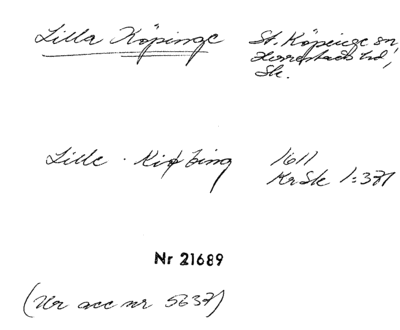 Lilla Köpinge St. Köpinge sn,
Herrestads hd,
Sk.
Lille Kiøbing 1611
KrSk 1:371
Nr 21689
(Ur acc nr 5637)